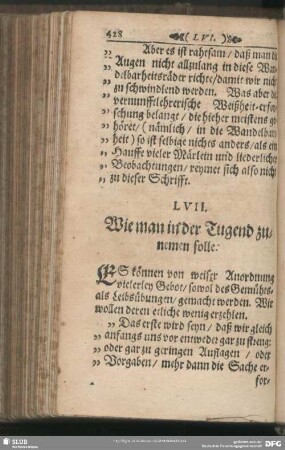 428 ( LVI. )
„ Aber es ist rahtsam / daß man die
„ Augen nicht allzulang in diese Wan-
„ delbarheitsräder richte / damit wir nicht
„ zu schwindlend werden. Was aber die
„ vernunfftlehrerische Weißheit-erfor-
„ schung belangt / die hieher meistens ge-
„ höret / ( nämlich / in die Wandelbar-
„ heit ) so ist selbige nichts anders / als ein
„ Hauffe vieler Märlein und liederlicher
„ Beobachtungen / reymet sich also nicht
„ zu dieser Schrifft.
LVII.
Wie man in der Tugend zu-
nemen solle.
ES können von weiser Anordnung
vielerley Gebot / sowol des Gemühts-
als Leibsübungen / gemacht werden. Wir
wollen deren etliche wenig erzehlen.
„ Das erste wird seyn / daß wir gleich
„ anfangs uns vor entweder gar zu streng:
„ oder gar zu geringen Auflagen / oder
„ Vorgaben / mehr dann die Sache er-
for-
SLUB
DFG